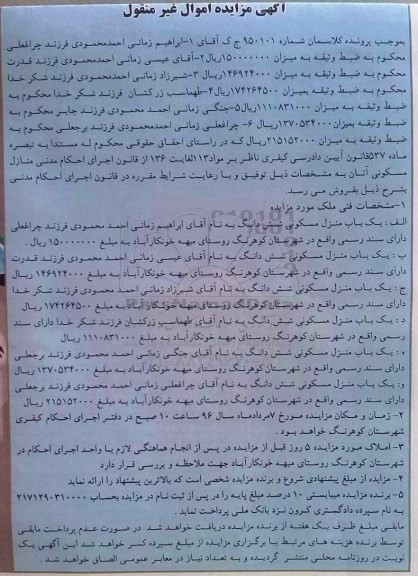 آگهی مزایده اموال غیر منقول
بموجب پرونده کلاسمان شماره ۹۵۰۱۰۱ ج ک آقای ۱-ابراهیم زمانی احمدمحمودی فرزند چراغعلی
محکوم به ضبط وثیقه به میزان ۱۵۰۰۰۰۰۰۰ریال ۲-آقای عیسی زمانی احمدمحمودی فرزند قدرت
محکوم به ضبط وثیقه به میزان ۱۴۶۹۲۴۰۰۰ریال ۳-شیرزاد زمانی احمدمحمودی فرزند شکر خدا
محکوم به ضبط وثیقه به میزان ۱۷۴۲۶۴۵۰۰ریال۴-طهماسب زرکشان فرزند شکر خدا محکوم به
ضبط وثیقه به میزان ۱۱۱۰۸۳۱۰۰۰ریال۵-جنگی زمانی احمد محمودی فرزند جابر محکوم به
ضبط وثیقه بمیزان۱۳۷۰۵۳۴۰۰۰ریال ۶- چراغعلی زمانی احمدمحمودی فرزند برجعلی محکوم به
ضبط وثیقه به میزان ۲۱۵۱۵۲۰۰۰ریال که در راستای احقاق حقوقی محکوم له مستندا به تبصره
ماده ۵۳۷قانون آیین دادرسی کیفری ناظر بر مواد۱۱۳الغایت ۱۳۶ از قانون اجرای احکام مدنی منازل
مسکونی آنان به مشخصات ذیل توقیف و با رعایت شرایط مقرره در قانون اجرای احکام مدنی
بشرح ذیل بفروش می رسد.
۱-مشخصات فنی ملک مورد مزایده
الف : یک باب منزل مسکونی شش دانگ به نام آقای ابراهیم زمانی احمد محمودی فرزند چراغعلی
دارای سند رسمی واقع در شهرستان کوهرنگ روستای میهه خونکارآباد به مبلغ ۱۵۰۰۰۰۰۰۰ ریال .
ب : یک باب منزل مسکونی شش دانگ به نام آقای عیسی زمانی احمد محمودی فرزند قدرت
دارای سند رسمی واقع در شهرستان کوهرنگ روستای میهه خونکارآباد به مبلغ ۱۴۶۹۲۴۰۰۰ ریال
ج : یک باب منزل مسکونی شش دانگ به نام آقای شیرزاد زمانی احمد محمودی فرزند شکر خدا
دارای سند رسمی واقع در شهرستان کوهرنگ روستای میهه خونکارآباد به مبلغ ۱۷۴۲۶۴۵۰۰ ریال
د : یک باب منزل مسکونی شش دانگ به نام آقای طهماسب زرکشان فرزند شکر خدا دارای سند
رسمی واقع در شهرستان کوهرنگ روستای میهه خونکارآباد به مبلغ ۱۱۱۰۸۳۱۰۰۰ ریال
ه : یک باب منزل مسکونی شش دانگ به نام آقای جنگی زمانی احمد محمودی فرزند برجعلی
دارای سند رسمی واقع در شهرستان کوهرنگ روستای میهه خونکارآباد به مبلغ ۱۳۷۰۵۳۴۰۰۰ ریال
و: یک باب منزل مسکونی شش دانگ به نام آقای چراغعلی زمانی احمد محمودی فرزند برجعلی
دارای سند رسمی واقع در شهرستان کوهرنگ روستای میهه خونکارآباد به مبلغ ۲۱۵۱۵۲۰۰۰ ریال
۲- زمان و مکان مزایده مورخ ۷مردادماه سال ۹۶ ساعت ۱۰ صبح در دفتر اجرای احکام کیفری
شهرستان کوهرنگ خواهد بود .
۳- املاک مورد مزایده ۵ روز قبل از مزایده در پس از انجام هماهنگی لازم با واحد اجرای احکام در
شهرستان کوهرنگ روستای میهه خونکارآباد جهت ملاحظه و بررسی قرار دارد
۴- مزایده از مبلغ پیشنهادی شروع و برنده مزایده شخصی است که بالاترین پیشنهاد را ارائه نماید
۵- برنده مزایده میبایستی ۱۰ درصد مبلغ پایه را در پس از ثبت نام در مزایده بحساب ۲۱۷۱۲۹۰۳۱۰۰۰۰
به نام سپرده دادگستری کرون نزد بانک ملی پرداخت نماید .
مابقی مبلغ ظرف یک هفته از برنده مزایده دریافت خواهد شد در صورت عدم پرداخت مابقی
توسط برنده هزینه های مرتبط با برگزاری مزایده از مبلغ سپرده کسر خواهد شد این آگهی یک
نوبت در روزنامه محلی منتشر گردیده و به تعداد نیاز در معابر عمومی الصاق خواهد شد .